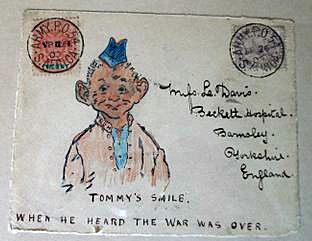 ARMY.P.O.
S.AFRICA
ARMY.P.O.
Miss L. Davis.
Beckett Hospital.
Barnsley.
Yorkshire.
England
TOMMY'S SMILE.
WHEN HE HEARD THE WAR WAS OVER.